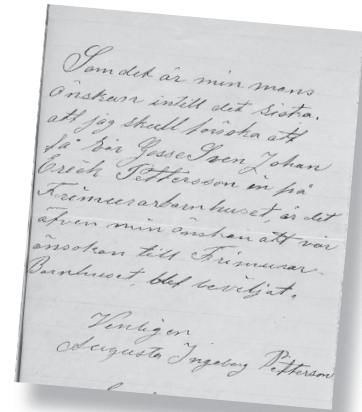 Som det är min mans
önskan intill det sista.
att jag skull försöka att
få vår Gosse Sven Johan
Erick Pettersson in på
Frimurarbarnhuset, är det
äfven min önskan att vår
ansökan till Frimurar-
Barnhuset, blef beviljat.
Venligen
Augusta Ingeborg Petterson